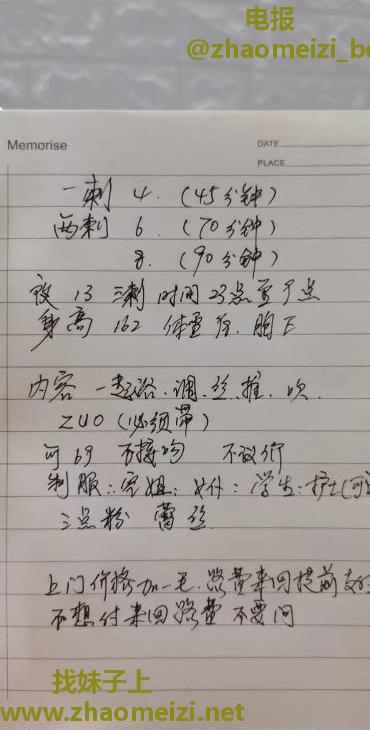 电报
@zhaomeizi_bo
Memorise
DATE
PLACE
一刺 4. (45分钟)
两刺 6. (70分钟)
8. (90分钟)
夜 13 三刺 时间 23点至7点
身高 162 体重 胸 E
内容 一起浴. 调. 丝. 推. 吹.
ZUO (必须带)
可69 不接吻 不议价
制服: 空姐: 女仆: 学生: 护士
三点粉 蕾丝.
上门价格加一毛. 路费来回提前支付
不想付来回路费 不要问
找妹子上
www.zhaomeizi.net